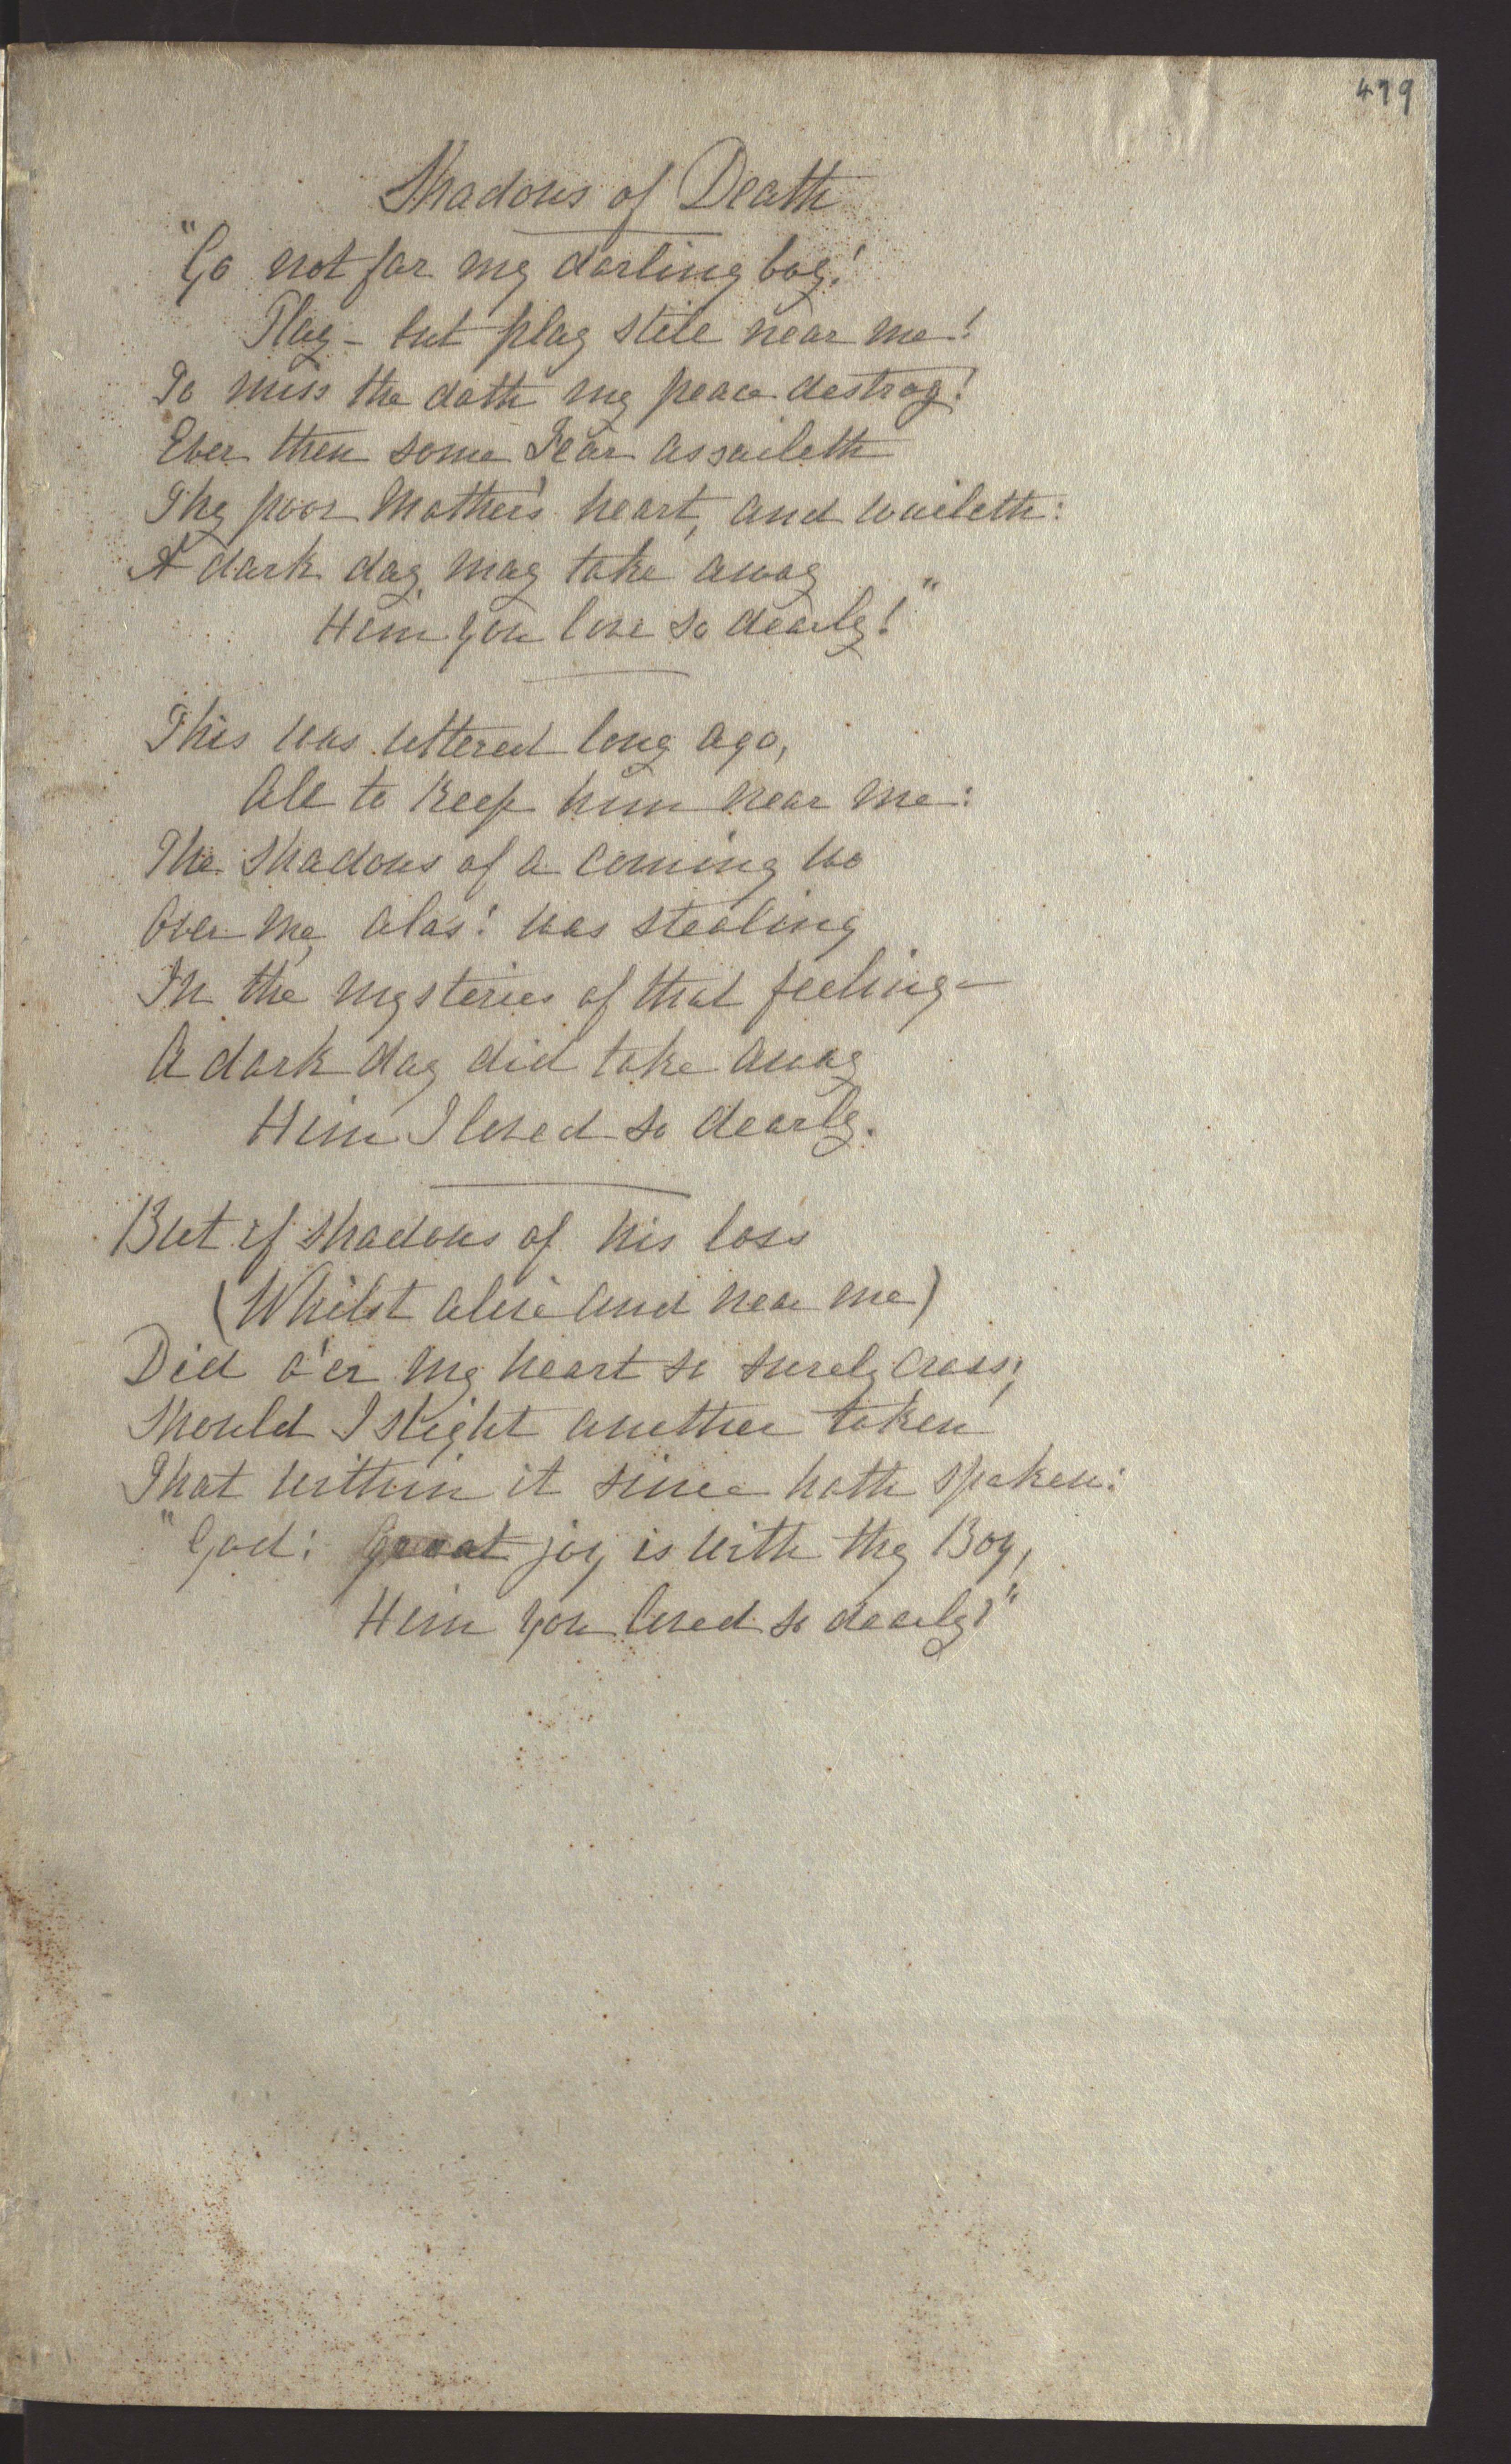 499
Shadows of Death
"Go not far my darling boy!
Play - but play still near me!
To miss thee doth my peace destroy!
Ever then some Fear assaileth
Thy poor Mother's heart, and waileth:
A dark day may take away
Him you love so dearly!"
This was uttered long ago,
All to keep him near me:
The shadows of a coming wo
Over me, alas! was stealing
In the mysteries of that feeling -
A dark day did take away
Him I loved so dearly.
But if shadows of his loss
(Whilst alive and near me)
Did o'er my heart so surely cross,
Should I slight another token
That within it since hath spoken:
"God: Great joy is with thy Boy,
Him you loved so dearly!"